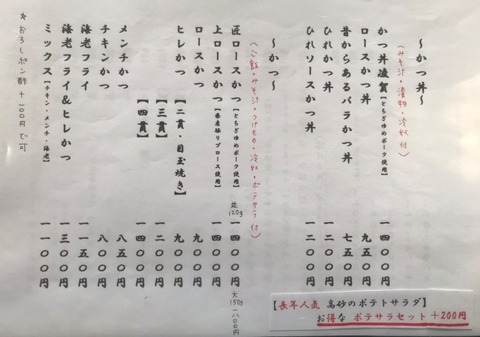 〜かつ丼〜
(みそ汁・漬物・冷奴付)
かつ丼 【とちぎゆめポーク使用】 一四〇〇円
ロースかつ丼 九五〇円
昔からあるバラかつ丼 七五〇円
ひれかつ丼 一二〇〇円
ひれソースかつ丼 一二〇〇円
〜かつ〜
(ご飯・みそ汁・つけもの・冷奴・ポテサラ付)
匠ロースかつ【とちぎゆめポーク使用】 並120g 一四〇〇円 大150g 一八〇〇円
上ロースかつ【厚切リブロース使用】 一四〇〇円
ロースかつ 九〇〇円
ヒレかつ 【二貫・目玉焼き】 九〇〇円
【三貫】 一二〇〇円
【四貫】 一四〇〇円
メンチかつ 八五〇円
チキンかつ 八〇〇円
海老フライ 一一五〇円
海老フライ&ヒレかつ 一三〇〇円
ミックス【チキン・メンチ・海老】 一一〇〇円
☆おろしポン酢+100円で可
【長年人気 高砂のポテトサラダ】
お得な ポテサラセット+200円